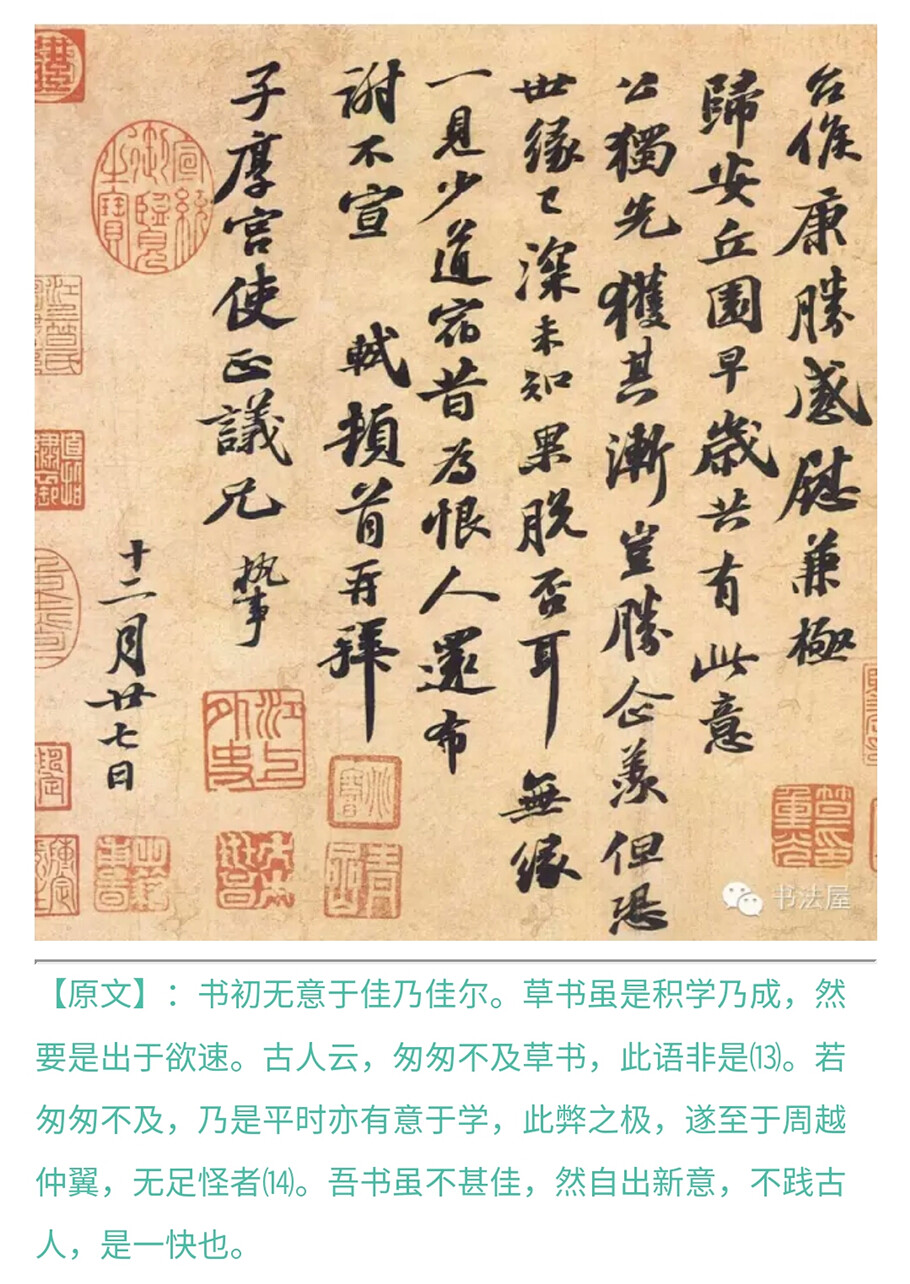 台候康勝感慰兼極
歸安丘園早歲共有此意
公獨先獲其漸豈勝企羨但恐
世緣已深未知果脫否耳無緣
一見少道宿昔為恨人還布
謝不宣 軾頓首再拜
子厚宮使正議兄執事
十二月廿七日
宣統御覽之寶
江上外史
书法屋
【原文】：书初无意于佳乃佳尔。草书虽是积学乃成，然
要是出于欲速。古人云，匆匆不及草书，此语非是⒀。若
匆匆不及，乃是平时亦有意于学，此弊之极，遂至于周越
仲翼，无足怪者⒁。吾书虽不甚佳，然自出新意，不践古
人，是一快也。